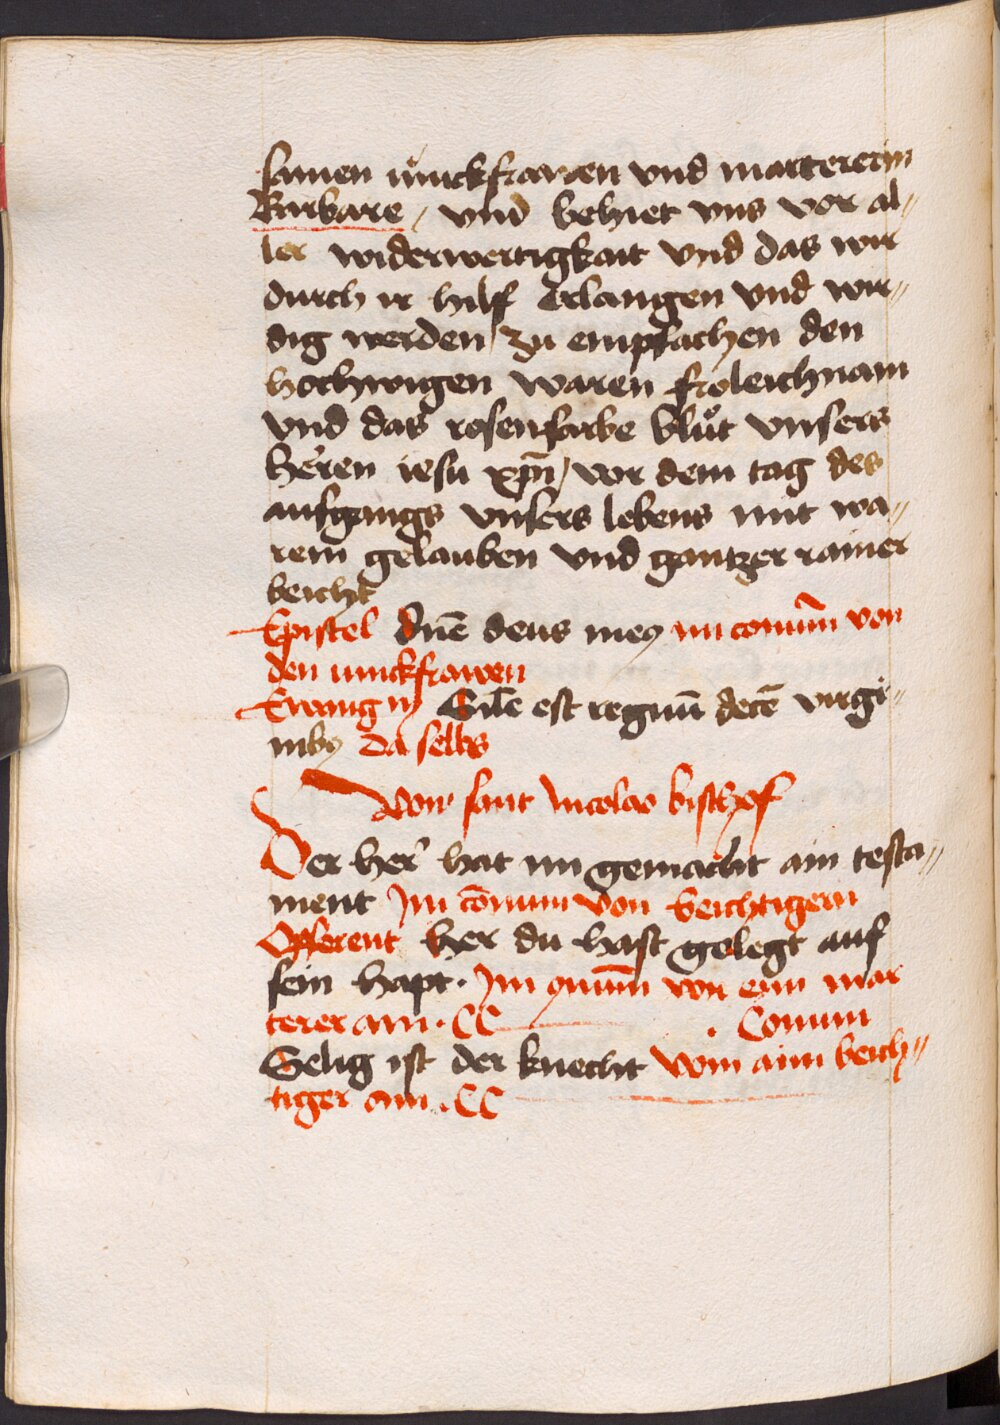 samen iunckfrawen vnd martererin
Barbare / vnd behuet vns vor al„
ler widerwertigkait vnd das wir
durch ir hilff erlangen vnd wir„
dig werden / zu empfachen den
hochwirgen waren froleichnam
vnd das rosenfarbe blůt vnsers
herren iesu xpī / vor dem tag des
aufgangs vnsers lebens mit wa„
rem gelauben vnd gantzer rainer
beicht
Epistel dn̄e deus meꝰ im com̄un von
den iunckfrawen
Ewangm̄ Sil̄e est regnū decē virgi„
nibꝰ da selbs
Von sant nicolao bischof
Der her hat im gemacht ain testa„
ment Im com̄un von beichtigern
Offerent her du hast gelegt auf
sein hapt. Im ꝯmun̄ von eim mar
terer am . CC . Comun
Selig ist der knecht vom aim beich„
tiger am . CC